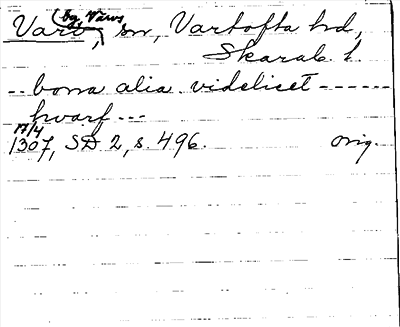 (by, Varvs
Varv, sn, Vartofta hd,
Skarab. l.
-- bona alia videlicet ------
hvarf ---
17/4
1307, SD 2, s. 496. orig.